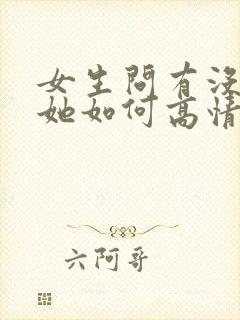 女生問有沒
她如何高情
六阿哥